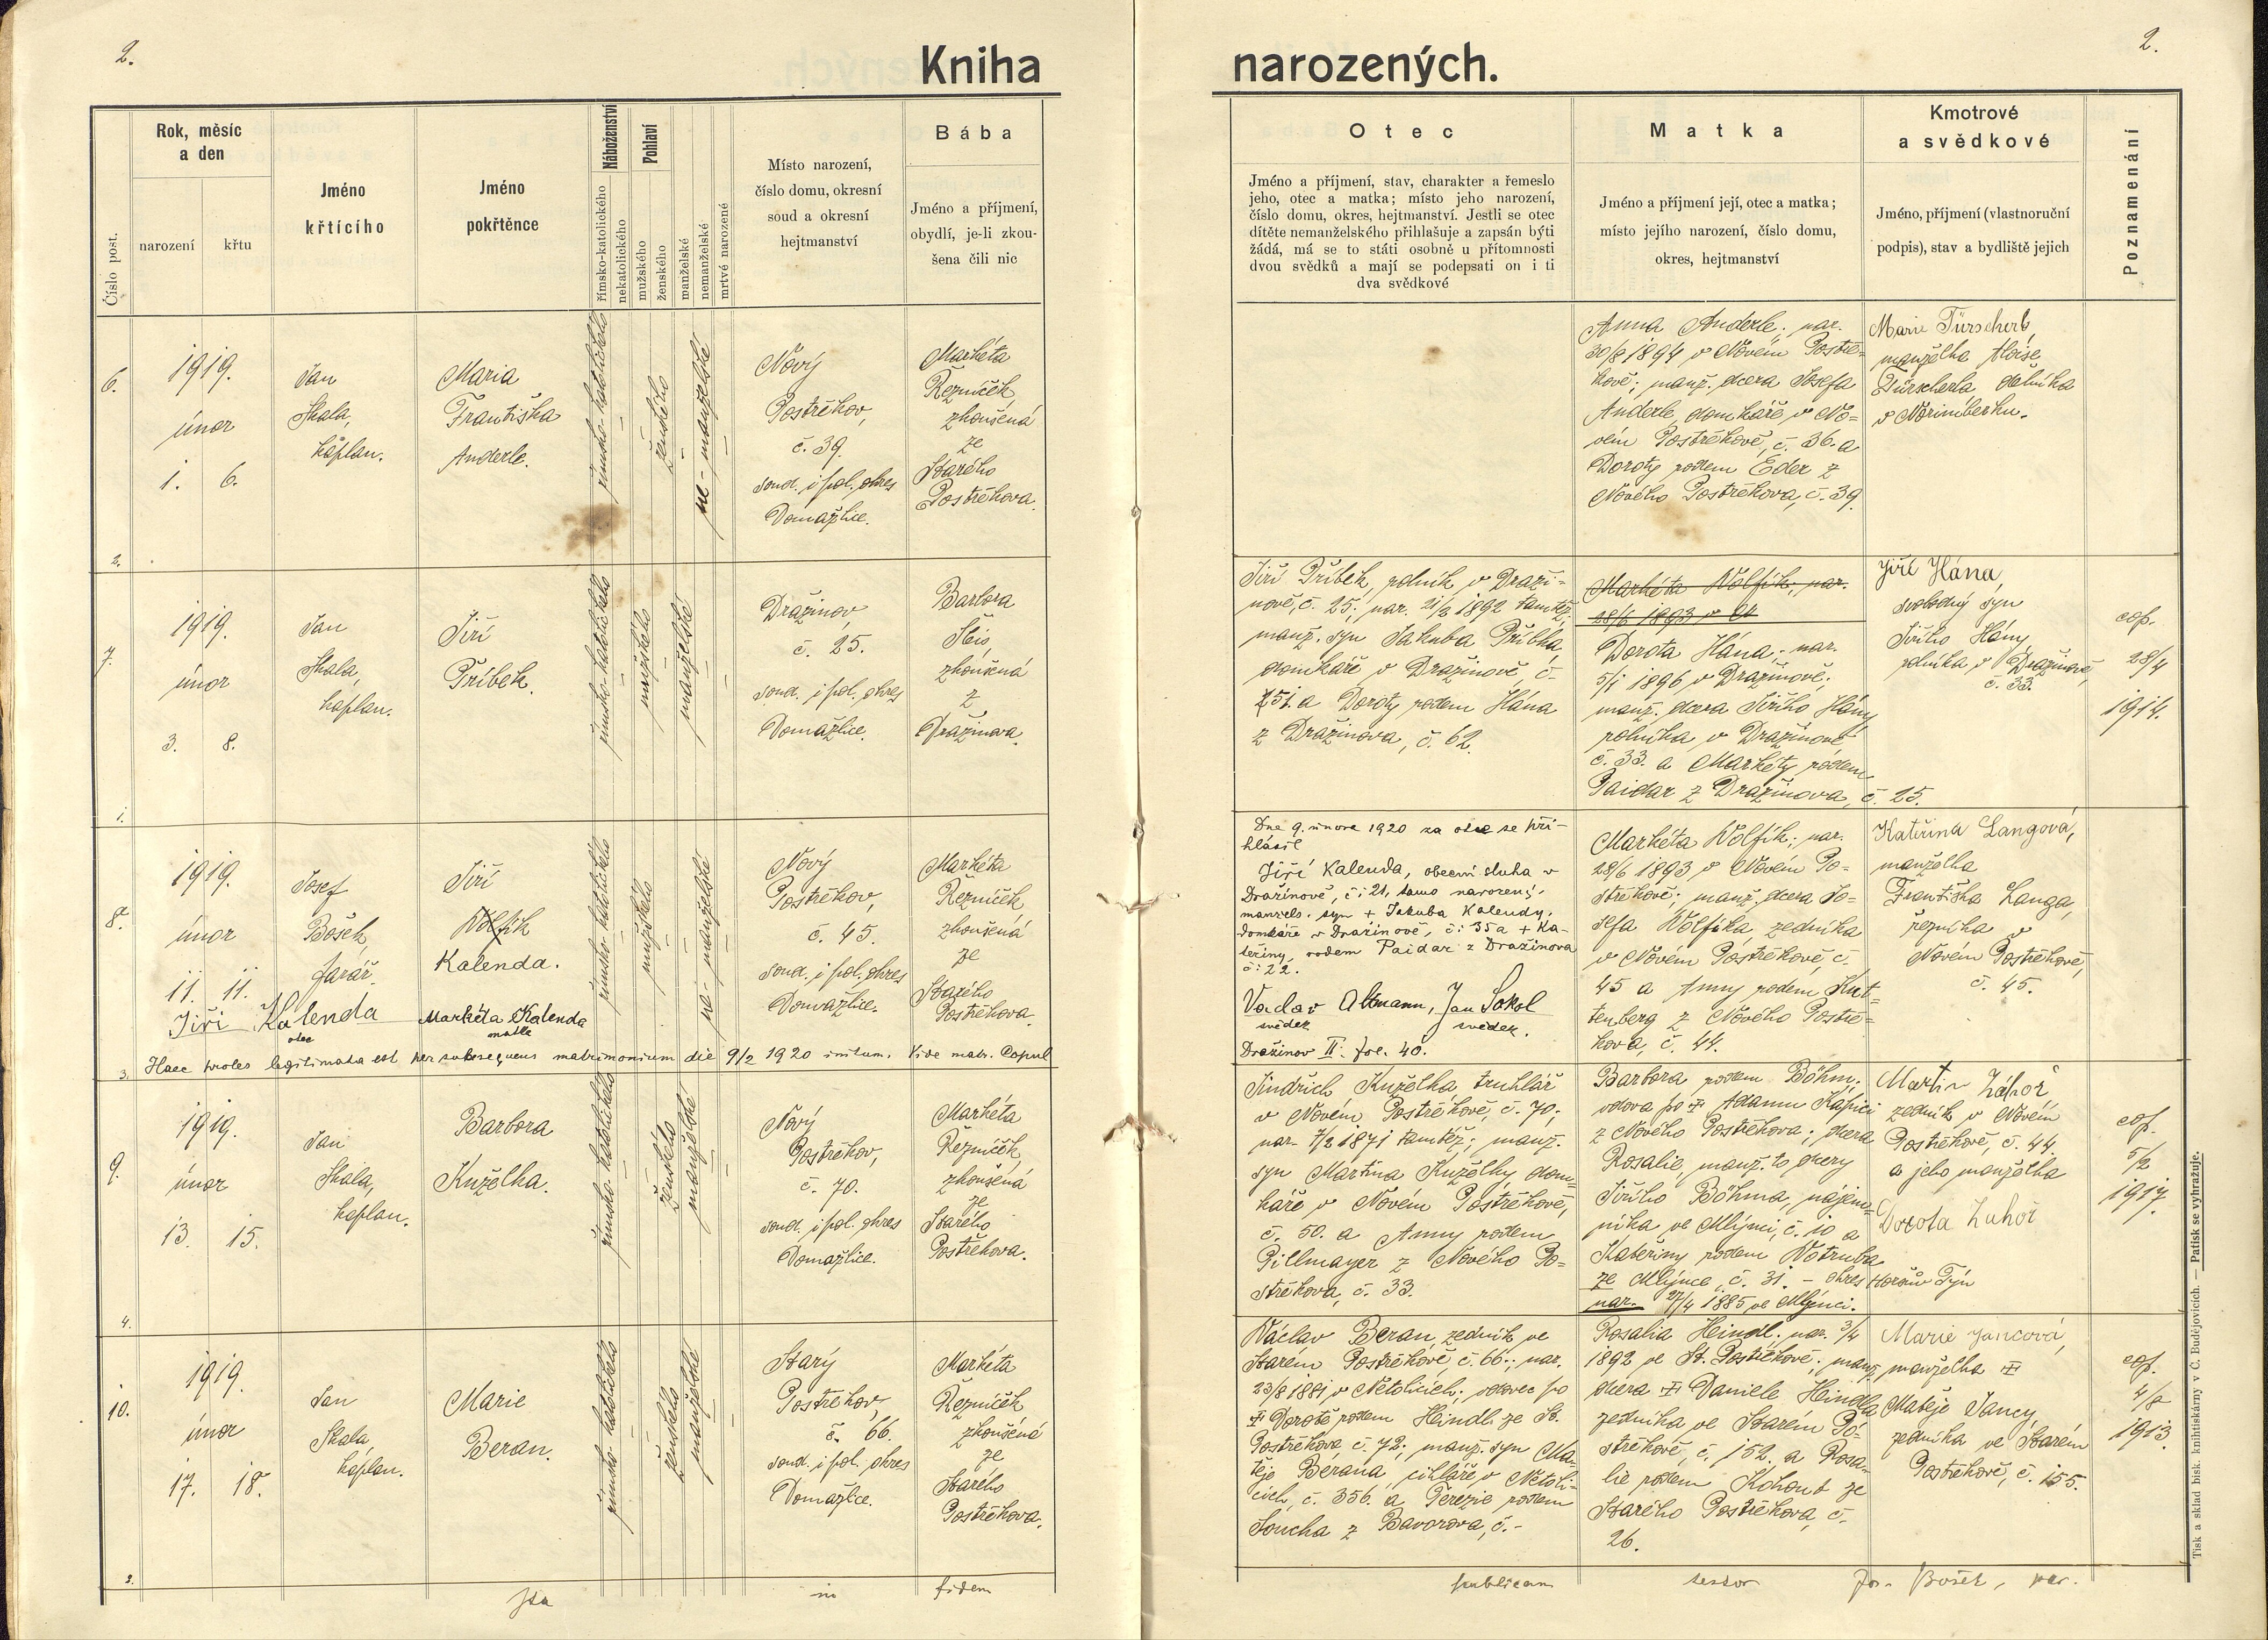 2.
Kniha
narozených.
2.
Číslo post.
Rok, měsíc
a den
narození
křtu
Jméno
křtícího
Jméno
pokřtěnce
Náboženství
římsko-katolického
nekatolického
Pohlaví
mužského
ženského
manželské
nemanželské
mrtvě narozené
Místo narození,
číslo domu, okresní
soud a okresní
hejtmanství
Bába
Jméno a příjmení,
obydlí, je-li zkou-
šena čili nic
Otec
Jméno a příjmení, stav, charakter a řemeslo
jeho, otec a matka; místo jeho narození,
číslo domu, okres, hejtmanství. Jestli se otec
dítěte nemanželského přihlašuje a zapsán býti
žádá, má se to státi osobně u přítomnosti
dvou svědků a mají se podepsati on i ti
dva svědkové
Matka
Jméno a příjmení její, otec a matka;
místo jejího narození, číslo domu,
okres, hejtmanství
Kmotrové
a svědkové
Jméno, příjmení (vlastnoruční
podpis), stav a bydliště jejich
Poznamenání
6.
1919.
únor
1. 6.
2.
Jan
Skala,
kaplan.
Maria
Františka
Anderle.
římsko-katolického
ženského
ne-manželské
Nový
Postřekov,
č. 39.
soud. i pol. okres
Domažlice.
Markéta
Řezníček,
zkoušená
ze
Starého
Postřekova.
Anna Anderle; nar.
30/8 1894 v Novém Postře-
kově; manž. dcera Josefa
Anderle, domkáře v No-
vém Postřekově, č. 36. a
Doroty rodem Eder z
Nového Postřekova, č. 39.
Marie Türscherl,
manželka Aloise
Türscherla dělníka
v Norimberku.
7.
1919.
únor
3. 8.
1.
Jan
Skala,
kaplan.
Jiří
Příbek.
římsko-katolického
mužského
manželské
Dražinov,
č. 25.
soud. i pol. okres
Domažlice.
Barbora
Šbis,
zkoušená
z
Dražinova.
Jiří Příbek, rolník v Draži-
nově, č. 25; nar. 21/2 1892 tamtéž;
manž. syn Jakuba Příbka,
domkáře v Dražinově, č.
25. a Doroty, rodem Hána
z Dražinova, č. 62.
Markéta Wolfik; nar.
28/6 1893 v
Dorota Hána; nar.
5/1 1896 v Dražinově;
manž. dcera Jiřího Hány,
rolníka v Dražinově
č. 33. a Markéty rodem
Paidar z Dražinova, č. 25.
Jiří Hána,
svobodný syn
Jiřího Hány,
rolníka v Dražinově,
č. 33.
cop.
28/4
1914.
8.
1919.
únor
11. 11.
3.
Josef
Bošek,
farář.
Jiří
Wolfik
Kalenda.
římsko-katolického
mužského
ne-manželské
Nový
Postřekov,
č. 45.
soud. i pol. okres
Domažlice.
Markéta
Řezníček
zkoušená
ze
Starého
Postřekova.
Jiří Kalenda
otec
Markéta Kalenda
matka
Haec proles legitimata est per subsequens matrimonium die 9/2 1920 initum. Vide matr. Copul
Dne 9. února 1920 za otce se při-
hlásil
Jiří Kalenda, obecní sluha v
Dražinově, č: 21, tamo narozený,
manžels. syn + Jakuba Kalendy,
domkáře v Dražinově, č: 35 a + Ka-
teřiny, rodem Paidar z Dražinova
č: 22.
Vaclav Altmann, Jan Sokol
svědek svědek.
Dražinov II. fol. 40.
Markéta Wolfik; nar.
28/6 1893 v Novém Po-
střekově; manž. dcera Jo-
sefa Wolfika, zedníka
v Novém Postřekově, č.
45 a Anny rodem Kut-
tenberg z Nového Postře-
kova, č. 44.
Kateřina Langová,
manželka
Františka Langa,
řezníka v
Novém Postřekově,
č. 45.
9.
1919.
únor
13. 15.
4.
Jan
Skala,
kaplan.
Barbora
Kuželka.
římsko-katolického
ženského
manželské
Nový
Postřekov,
č. 70.
soud. i pol. okres
Domažlice.
Markéta
Řezníček,
zkoušená
ze
Starého
Postřekova.
Jindřich Kuželka truhlář
v Novém Postřekově, č. 70;
nar. 7/2 1871 tamtéž; manž.
syn Martina Kuželky, dom-
káře v Novém Postřekově,
č. 50. a Anny rodem
Pillmayer z Nového Po-
střekova, č. 33.
Barbora rodem Böhm;
vdova po Adamu Kapici
z Nového Postřekova; dcera
Rosalie, manž. to dcery
Jiřího Böhma, nájem-
níka ve Mlýnci, č. 10 a
Kateřiny rodem Votruba
ze Mlýnce, č. 31. - okres Horšův Týn
nar. 27/4 1885 ve Mlýnci.
Martin Záhoř,
zedník v Novém
Postřekově, č. 44
a jeho manželka
Dorota Zahoř
cop.
5/2
1917.
10.
1919.
únor
17. 18.
Jan
Skala,
kaplan.
Marie
Beran.
římsko-katolického
ženského
manželské
Starý
Postřekov,
č. 66.
soud. i pol. okres
Domažlice.
Markéta
Řezníček
zkoušená
ze
Starého
Postřekova.
Václav Beran, zedník ve
Starém Postřekově, č. 66; nar.
23/8 1881 v Netolicích; vdovec po
Dorotě rodem Heindl ze St.
Postřekova č. 72; manž. syn Ma-
těje Berana, cihláře v Netoli-
cích, č. 356. a Terezie rodem
Soucha z Bavorova, č. -
Rosalia Heindl; nar. 3/4
1892 ve St. Postřekově; manž.
dcera Daniele Heindla
zedníka ve Starém Po-
střekově, č. 152. a Rosa-
lie rodem Kohout ze
Starého Postřekova, č.
26.
Marie Jancová,
manželka
Matěje Jancy,
zedníka ve Starém
Postřekově, č. 155.
cop.
4/2
1913.
Ita in fidem publicam testor Jos. Bošek, par.
Tisk a sklad bisk. knihtiskárny v Č. Budějovicích. — Patisk se vyhražuje.